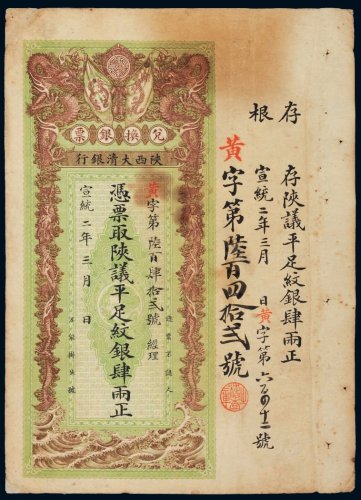 存根
存陝議平足紋銀肆兩正
宣統二年三月 日黃字第六百四十二號
黃字第陸百四拾弍號
票銀換兌
行銀清大西陝
黃字第陸百肆拾弍號 經理
憑票取陝議平足紋銀肆兩正
宣統二年三月 日
認票不認人